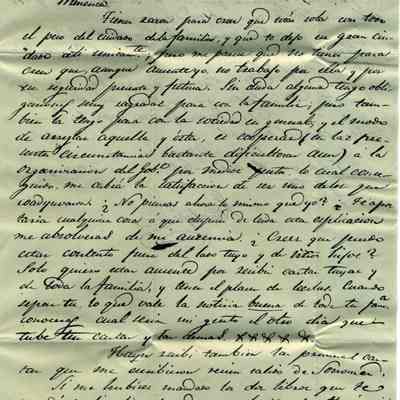 Tienes razon para creer que eres sola con todo
el peso del cuidado de la familia, y que te dejo en gran cui-
dado semejante, pero me parece que no tienes para
creer que aunque ausente yo, no trabajo por ella y por
su seguridad presente y futura. Sin duda alguna tengo obli-
gaciones muy sagradas para con la familia; pero tam-
bien la tengo para con la sociedad en general, y el modo
de arreglar aquella y esta, es cooperar (en las pre-
sentes circunstancias bastante dificultosas aun) á la
organizacion del gob.º por medios justos lo cual conse-
guido, me cabra la satisfaccion de ser uno de los que
coadyuvaron. ¿No piensas ahora lo mismo que yo? Te apos-
taria cualquiera cosa á que despues de toda esta esplicacion
me absolveras de mi ausencia. ¿Crees que puedo
estar contento fuera del lado tuyo y de tus hijos?
Solo quiero estar ausente por recibir cartas tuyas y
de toda la familia, y tener el placer de leerlas. Cuando
sepas tu lo que vale la noticia buena de toda tu fam.ª
conoceras cual seria mi gusto el otro dia que
tube tu carta y las demas. XXXXX
Hayer recibi tambien las primeras car-
tas que me escribieron recien salidos de
Si me hubieras mandado los dos libros que te